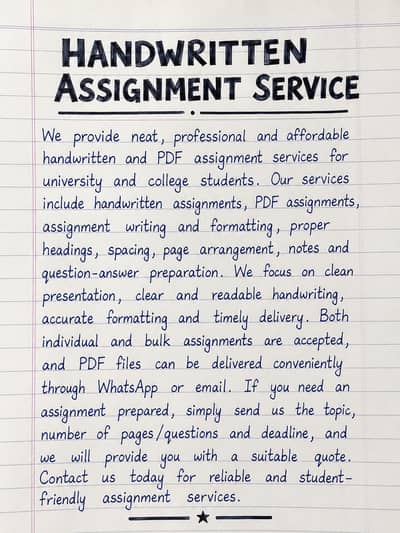 HANDWRITTEN
ASSIGNMENT SERVICE
We provide neat, professional and affordable
handwritten and PDF assignment services for
university and college students. Our services
include handwritten assignments, PDF assignments,
assignment writing and formatting, proper
headings, spacing, page arrangement, notes and
question-answer preparation. We focus on clean
presentation, clear and readable handwriting,
accurate formatting and timely delivery. Both
individual and bulk assignments are accepted,
and PDF files can be delivered conveniently
through WhatsApp or email. If you need an
assignment prepared, simply send us the topic,
number of pages/questions and deadline, and
we will provide you with a suitable quote.
Contact us today for reliable and student-
friendly assignment services.